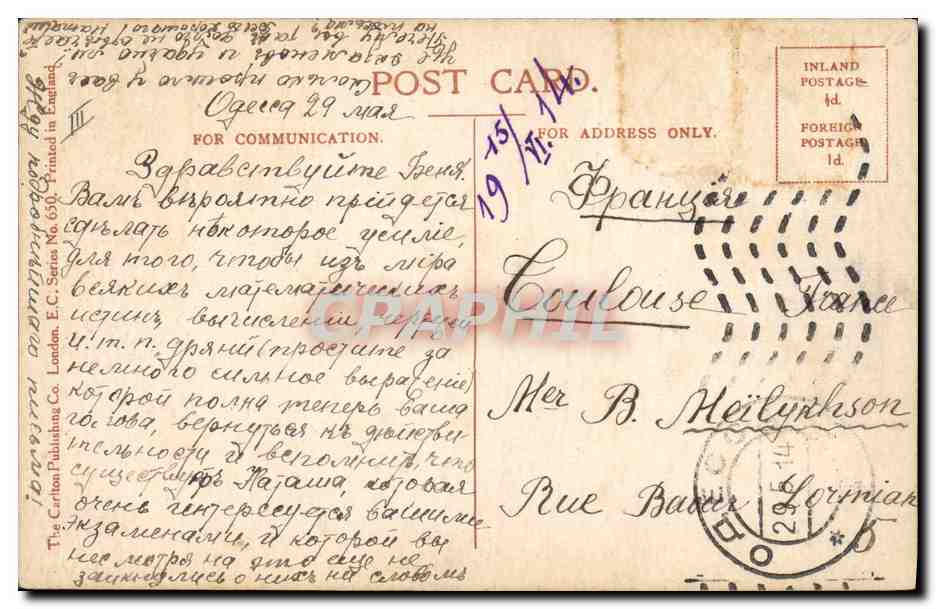 POST CARD.
Одесса 29 мая
FOR COMMUNICATION.
Здравствуйте Беня!
Вамъ вѣроятно прійдется
сдѣлать нѣкоторое усиліе,
для того, чтобы изъ міра
всякихъ математическихъ
истинъ, вычисленій,
и. т. п. дряни (простите за
немного сильное выраженіе)
которой полна теперь ваша
голова, вернуться къ дѣйстви
тельности и вспомнить, что
существуетъ Наташа, которая
очень интересуется вашими
экзаменами, и которой вы
несмотря на это еще не
заикнулись о нихъ ни словомъ
Сколько прошло у васъ
Жду подробнѣйшаго письма!
III
The Carlton Publishing Co. London. E. C. Series No. 650. Printed in England
19 15/VI. 14.
FOR ADDRESS ONLY.
INLAND
POSTAGE
½d.
FOREIGN
POSTAGE
1d.
Франція
Toulouse France
Mer B. Meïlykhson
Rue Baour Lormian
5
ОДЕССА
29.5.14
CPAPHIL